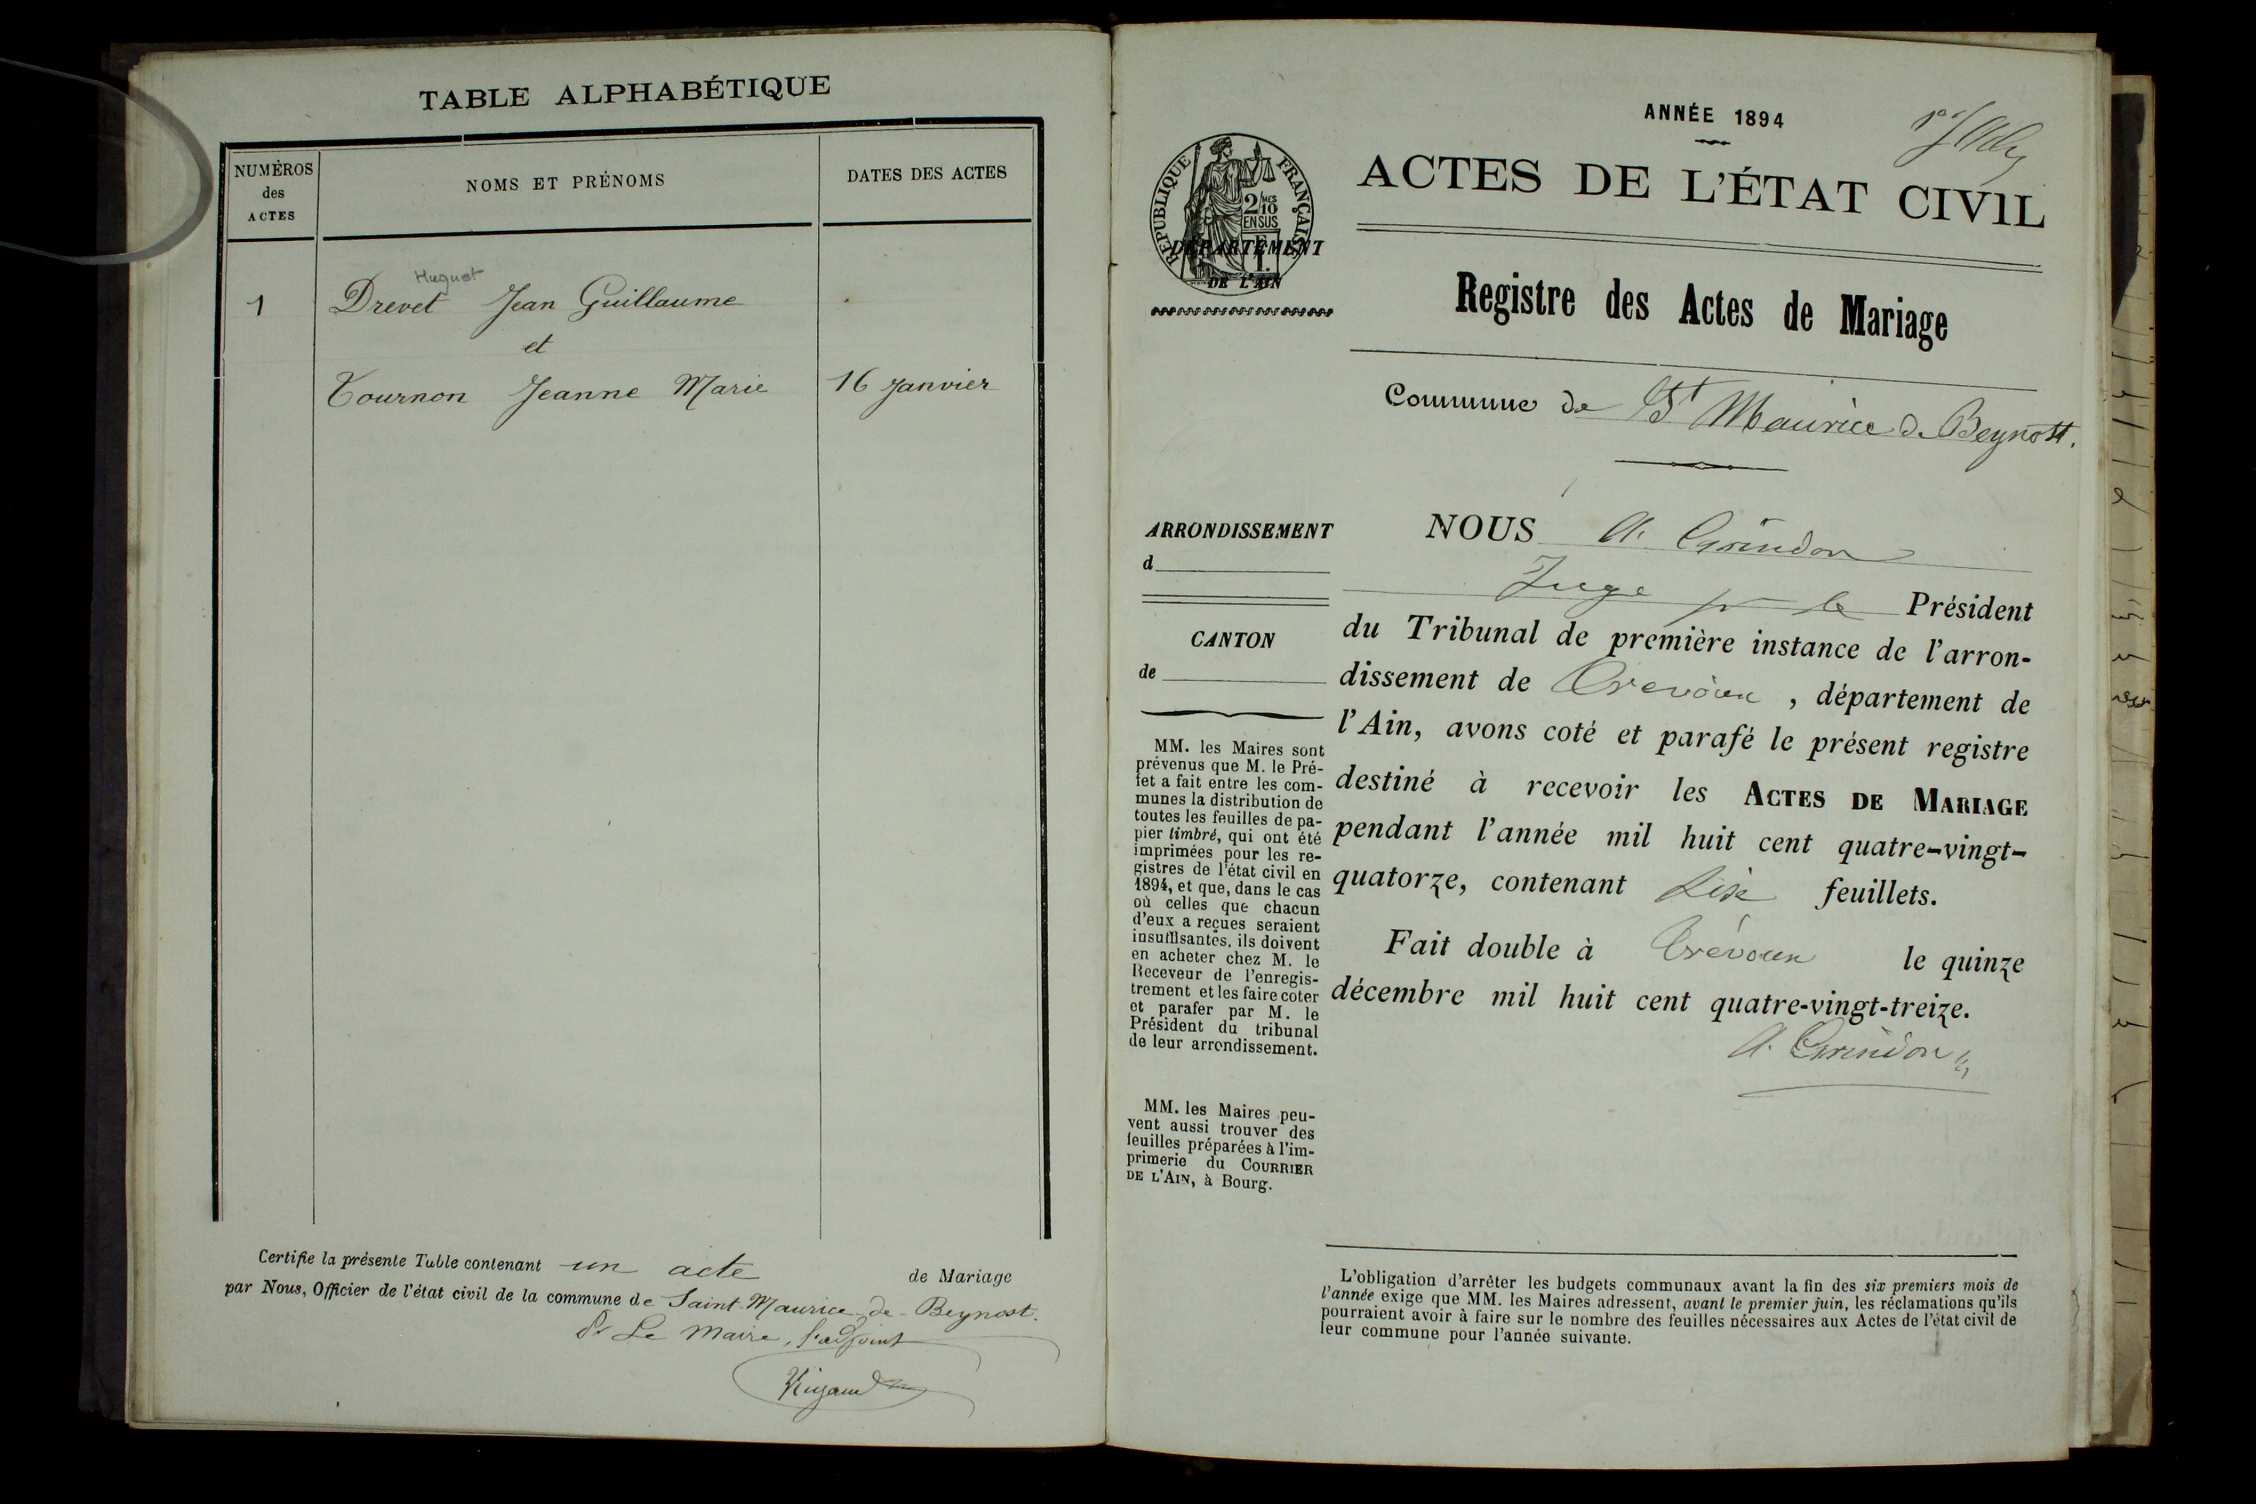 TABLE ALPHABÉTIQUE
NUMÉROS
des
ACTES
NOMS ET PRÉNOMS
DATES DES ACTES
Huguet
1 Drevet Jean Guillaume
et
Tournon Jeanne Marie 16 Janvier
Certifie la présente Table contenant un acte de Mariage
par Nous, Officier de l'état civil de la commune de Saint-Maurice-de-Beynost.
Pr Le Maire, l'adjoint
Rigaud
ANNÉE 1894
ACTES DE L'ÉTAT CIVIL
RÉPUBLIQUE FRANÇAISE
2/10
EN SUS
DÉPARTEMENT
DE L'AIN
Registre des Actes de Mariage
Commune de St Maurice de Beynost.
ARRONDISSEMENT
d
CANTON
de
MM. les Maires sont
prévenus que M. le Pré-
fet a fait entre les com-
munes la distribution de
toutes les feuilles de pa-
pier timbré, qui ont été
imprimées pour les re-
gistres de l'état civil en
1894, et que, dans le cas
où celles que chacun
d'eux a reçues seraient
insuffisantes, ils doivent
en acheter chez M. le
Receveur de l'enregis-
trement et les faire coter
et parafer par M. le
Président du tribunal
de leur arrondissement.
MM. les Maires peu-
vent aussi trouver des
feuilles préparées à l'im-
primerie du COURRIER
DE L'AIN, à Bourg.
NOUS A. Grindon
Juge pr le Président
du Tribunal de première instance de l'arron-
dissement de Trévoux, département de
l'Ain, avons coté et parafé le présent registre
destiné à recevoir les ACTES DE MARIAGE
pendant l'année mil huit cent quatre-vingt-
quatorze, contenant six feuillets.
Fait double à Trévoux le quinze
décembre mil huit cent quatre-vingt-treize.
A. Grindon
L'obligation d'arrêter les budgets communaux avant la fin des six premiers mois de
l'année exige que MM. les Maires adressent, avant le premier juin, les réclamations qu'ils
pourraient avoir à faire sur le nombre des feuilles nécessaires aux Actes de l'état civil de
leur commune pour l'année suivante.